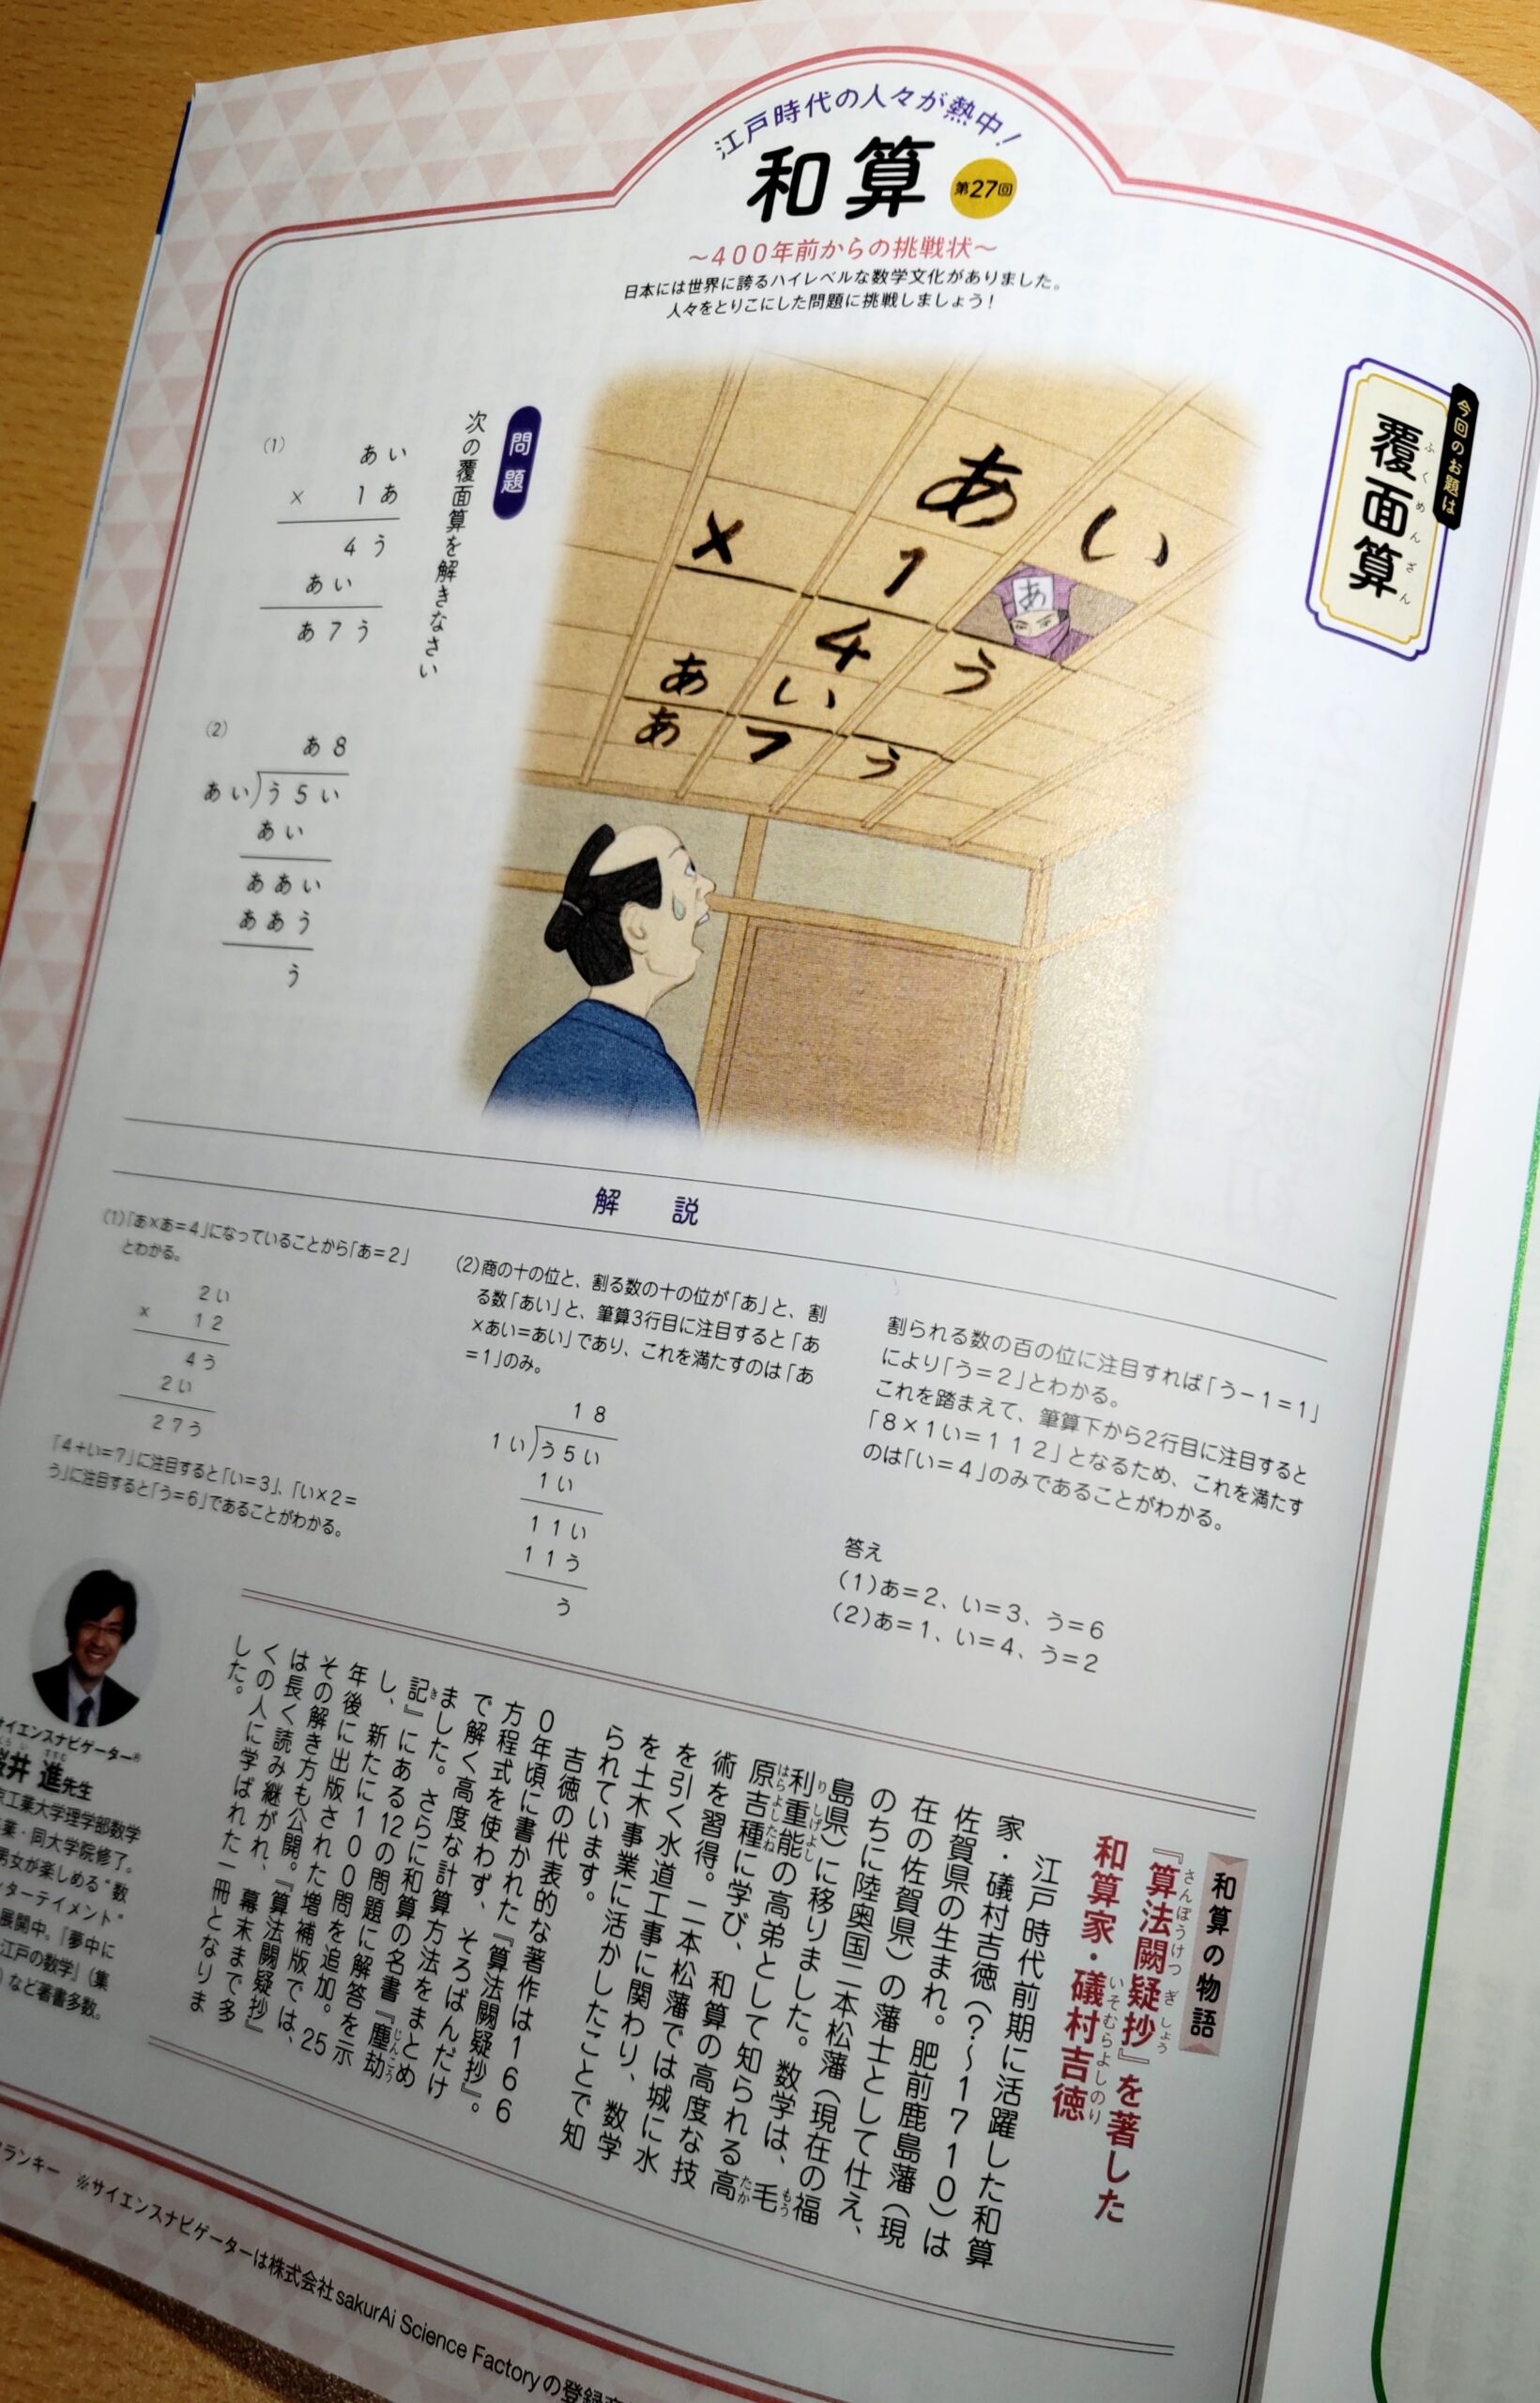 江戸時代の人々が熱中！
和算 第27回
～400年前からの挑戦状～
日本には世界に誇るハイレベルな数学文化がありました。
人々をとりこにした問題に挑戦しましょう！
今回のお題は
覆面算
ふくめんざん
あ い
× 1 あ
4 う
あ い
あ 7 う
問題
次の覆面算を解きなさい
(1)
あ い
× 1 あ
4 う
あ い
あ 7 う
(2)
あ 8
あ い)う 5 い
あ い
あ あ い
あ あ う
う
解 説
(1)「あ×あ＝4」になっていることから「あ＝2」
とわかる。
2 い
× 1 2
4 う
2 い
2 7 う
「4＋い＝7」に注目すると「い＝3」、「い×2＝
う」に注目すると「う＝6」であることがわかる。
(2)商の十の位と、割る数の十の位が「あ」と、割
る数「あい」と、筆算3行目に注目すると「あ
×あい＝あい」であり、これを満たすのは「あ
＝1」のみ。
1 8
1 い)う 5 い
1 い
1 1 い
1 1 う
う
割られる数の百の位に注目すれば「う－1＝1」
により「う＝2」とわかる。
これを踏まえて、筆算下から2行目に注目すると
「8×1い＝112」となるため、これを満たす
のは「い＝4」のみであることがわかる。
答え
(1)あ＝2、い＝3、う＝6
(2)あ＝1、い＝4、う＝2
和算の物語
『算法闕疑抄』を著した
さんぽうけつぎしょう
和算家・礒村吉徳
いそむらよしのり
江戸時代前期に活躍した和算
家・礒村吉徳（？～1710）は
佐賀県の生まれ。肥前鹿島藩（現
在の佐賀県）の藩士として仕え、
のちに陸奥国二本松藩（現在の福
島県）に移りました。数学は、毛
利重能の高弟として知られる高
原吉種に学び、和算の高度な技
術を習得。二本松藩では城に水
を引く水道工事に関わり、数学
を土木事業に活かしたことで知
られています。
吉徳の代表的な著作は166
0年頃に書かれた『算法闕疑抄』。
方程式を使わず、そろばんだけ
で解く高度な計算方法をまとめ
ました。さらに和算の名書『塵劫
記』にある12の問題に解答を示
し、新たに100問を追加。25
年後に出版された増補版では、
その解き方も公開。『算法闕疑抄』
は長く読み継がれ、幕末まで多
くの人に学ばれた一冊となりま
した。
サイエンスナビゲーター®
桜井 進先生
工業大学理学部数学
業・同大学院修了。
男女が楽しめる“数
ターテイメント”
展開中。「夢中に
江戸の数学」（集
）など著書多数。
ランキー ※サイエンスナビゲーターは株式会社sakurAi Science Factoryの登録